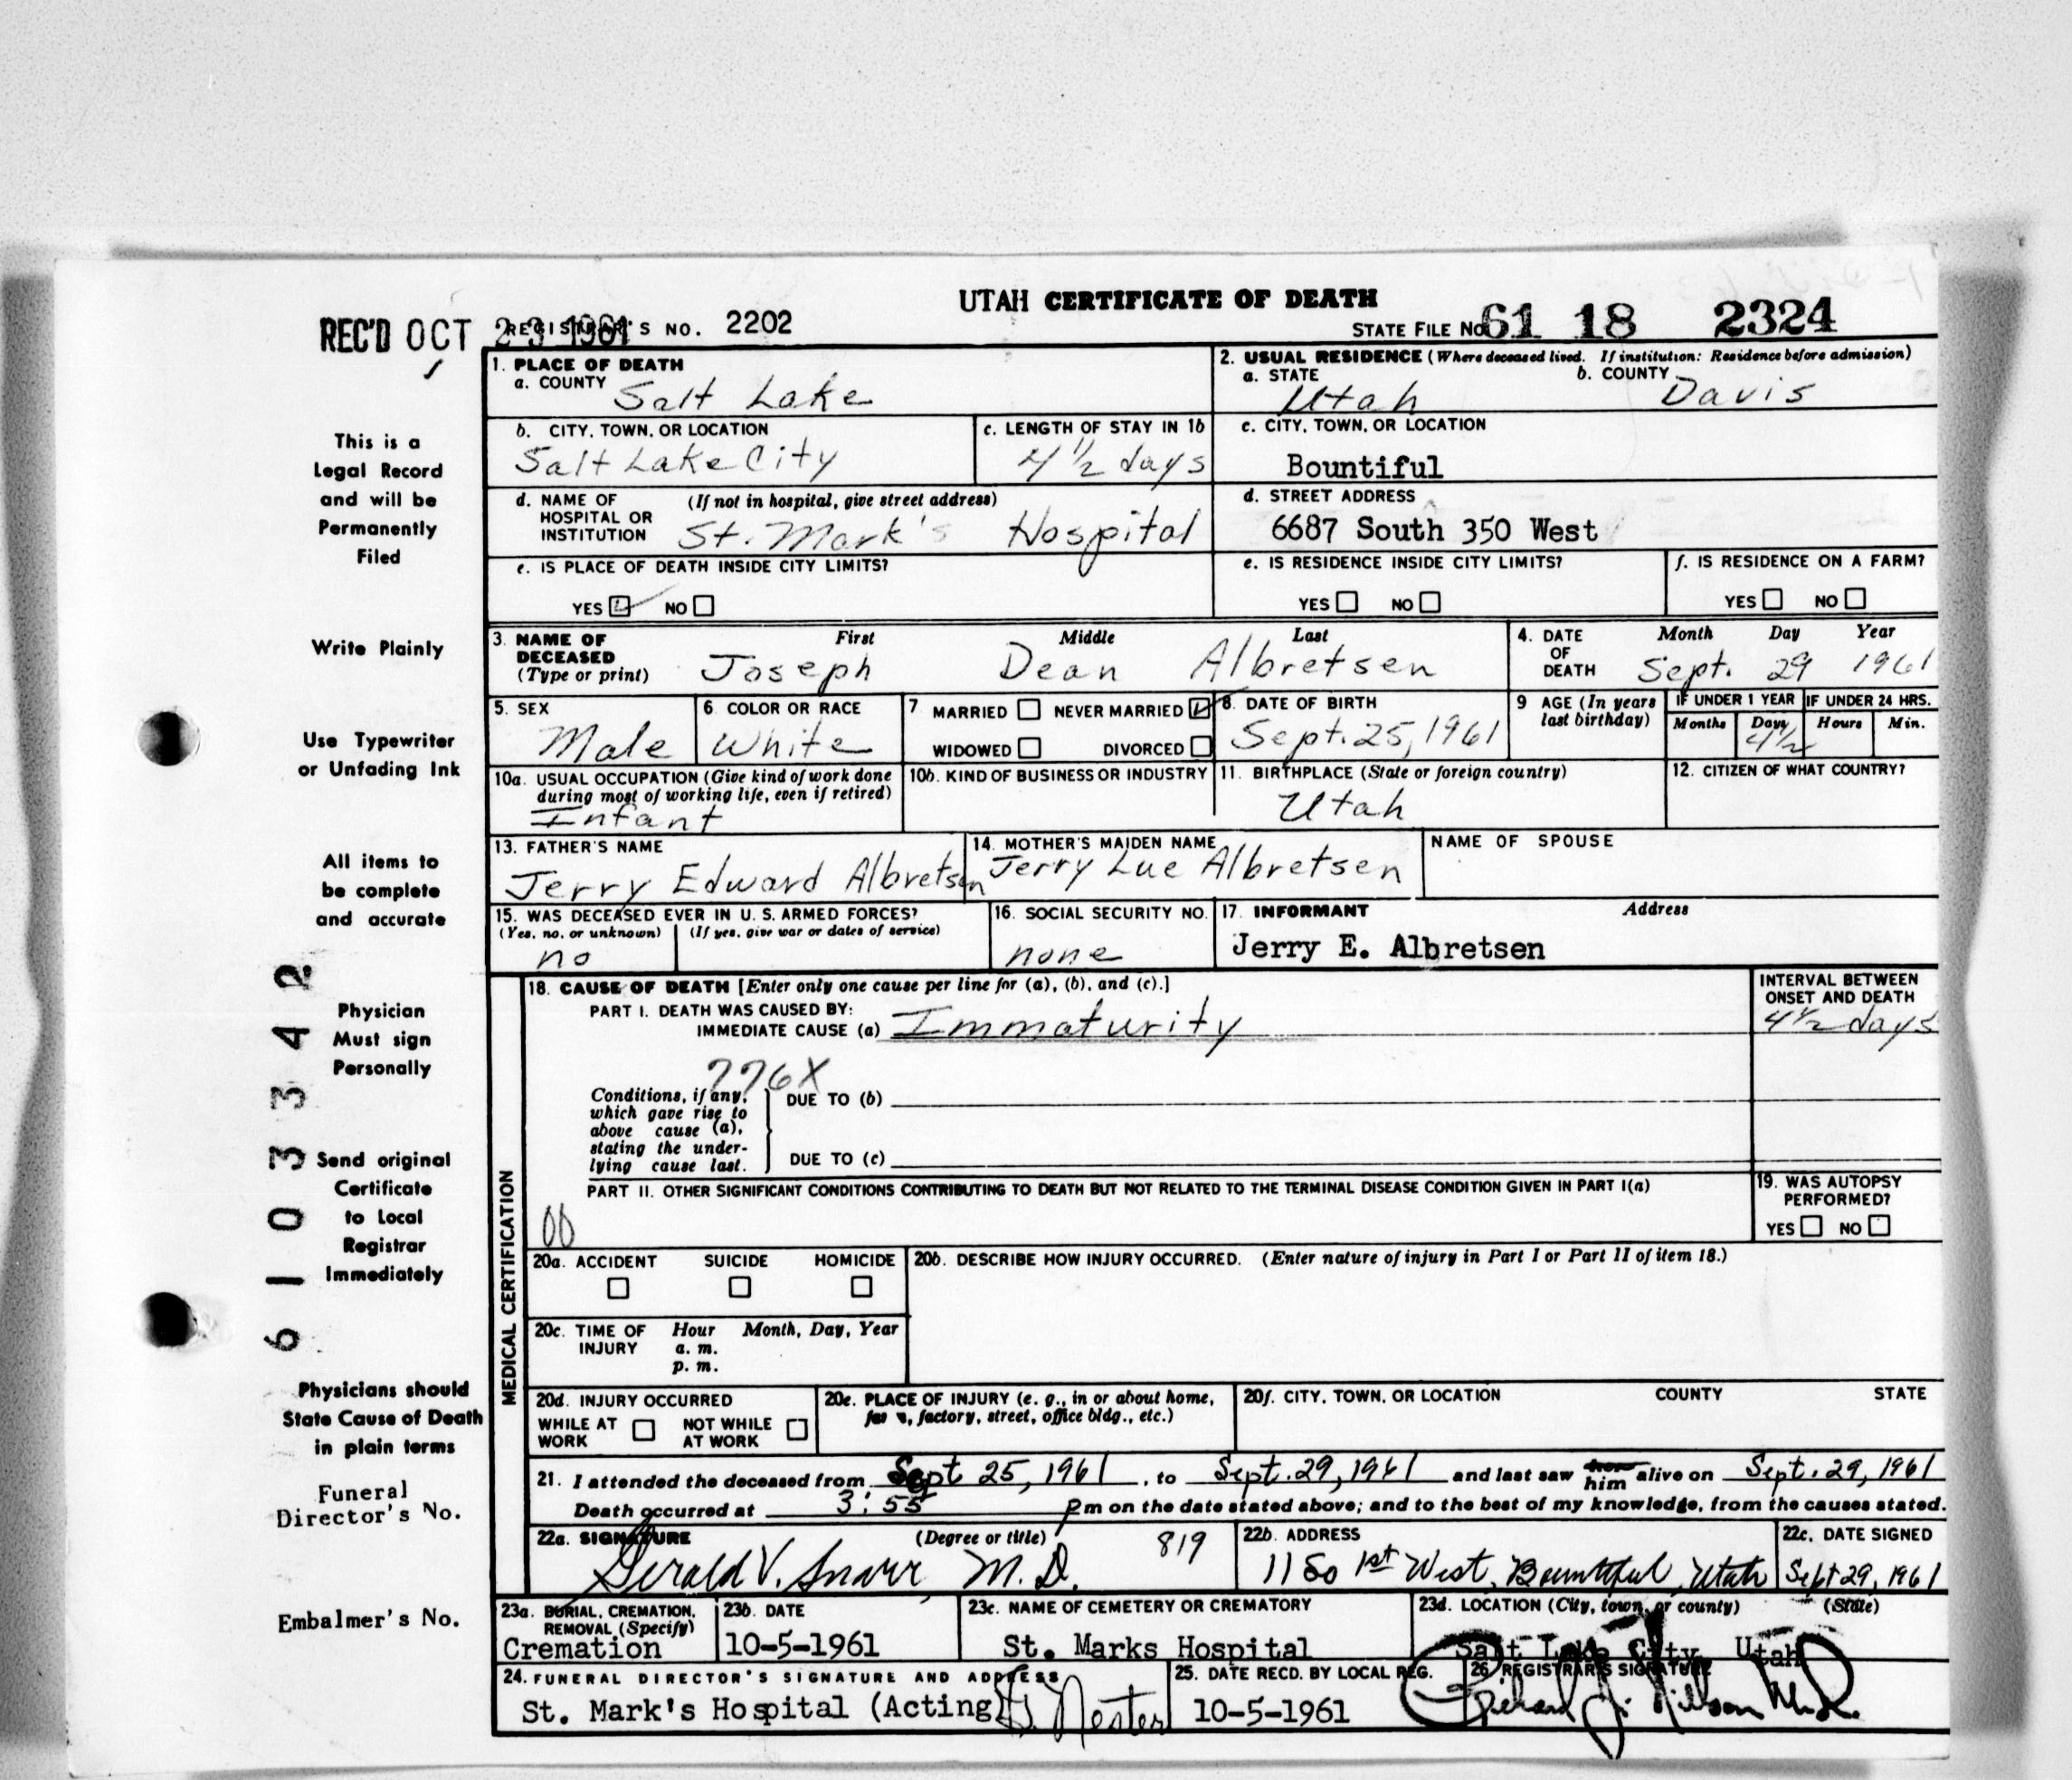 UTAH CERTIFICATE OF DEATH
REC'D OCT 23 1961 REGISTRAR'S NO. 2202 STATE FILE NO. 61 18 2324
This is a
Legal Record
and will be
Permanently
Filed
Write Plainly
Use Typewriter
or Unfading Ink
All items to
be complete
and accurate
Physician
Must sign
Personally
Send original
Certificate
to Local
Registrar
Immediately
Physicians should
State Cause of Death
in plain terms
Funeral
Director's No.
Embalmer's No.
6 1 0 3 3 4 2
1. PLACE OF DEATH
a. COUNTY Salt Lake
2. USUAL RESIDENCE (Where deceased lived. If institution: Residence before admission)
a. STATE Utah b. COUNTY Davis
b. CITY, TOWN, OR LOCATION
Salt Lake City
c. LENGTH OF STAY IN 1b
4 1/2 days
c. CITY, TOWN, OR LOCATION
Bountiful
d. NAME OF (If not in hospital, give street address)
HOSPITAL OR
INSTITUTION St. Mark's Hospital
d. STREET ADDRESS
6687 South 350 West
e. IS PLACE OF DEATH INSIDE CITY LIMITS?
YES NO
e. IS RESIDENCE INSIDE CITY LIMITS?
YES NO
f. IS RESIDENCE ON A FARM?
YES NO
3. NAME OF First Middle Last
DECEASED
(Type or print) Joseph Dean Albretsen
4. DATE Month Day Year
OF
DEATH Sept. 29 1961
5. SEX
Male
6. COLOR OR RACE
White
7 MARRIED NEVER MARRIED
WIDOWED DIVORCED
8. DATE OF BIRTH
Sept. 25, 1961
9 AGE (In years
last birthday)
IF UNDER 1 YEAR IF UNDER 24 HRS.
Months Days Hours Min.
4 1/2
10a. USUAL OCCUPATION (Give kind of work done
during most of working life, even if retired)
Infant
10b. KIND OF BUSINESS OR INDUSTRY
11. BIRTHPLACE (State or foreign country)
Utah
12. CITIZEN OF WHAT COUNTRY?
13. FATHER'S NAME
Jerry Edward Albretsen
14. MOTHER'S MAIDEN NAME
Jerry Lue Albretsen
NAME OF SPOUSE
15. WAS DECEASED EVER IN U. S. ARMED FORCES?
(Yes, no, or unknown) (If yes, give war or dates of service)
no
16. SOCIAL SECURITY NO.
none
17. INFORMANT Address
Jerry E. Albretsen
MEDICAL CERTIFICATION
18. CAUSE OF DEATH [Enter only one cause per line for (a), (b), and (c).]
PART I. DEATH WAS CAUSED BY:
IMMEDIATE CAUSE (a) Immaturity
INTERVAL BETWEEN
ONSET AND DEATH
4 1/2 days
776X
Conditions, if any,
which gave rise to
above cause (a),
stating the under-
lying cause last.
DUE TO (b)
DUE TO (c)
PART II. OTHER SIGNIFICANT CONDITIONS CONTRIBUTING TO DEATH BUT NOT RELATED TO THE TERMINAL DISEASE CONDITION GIVEN IN PART I(a)
00
19. WAS AUTOPSY
PERFORMED?
YES NO
20a. ACCIDENT SUICIDE HOMICIDE
20b. DESCRIBE HOW INJURY OCCURRED. (Enter nature of injury in Part I or Part II of item 18.)
20c. TIME OF Hour Month, Day, Year
INJURY a. m.
p. m.
20d. INJURY OCCURRED
WHILE AT NOT WHILE
WORK AT WORK
20e. PLACE OF INJURY (e. g., in or about home,
factory, street, office bldg., etc.)
20f. CITY, TOWN, OR LOCATION COUNTY STATE
21. I attended the deceased from Sept 25, 1961, to Sept. 29, 1961 and last saw her him alive on Sept. 29, 1961
Death occurred at 3:55 pm on the date stated above; and to the best of my knowledge, from the causes stated.
22a. SIGNATURE (Degree or title) 819
Gerald V. Snarr, M.D.
22b. ADDRESS
1150 1st West, Bountiful, Utah
22c. DATE SIGNED
Sept 29, 1961
23a. BURIAL, CREMATION,
REMOVAL (Specify)
Cremation
23b. DATE
10-5-1961
23c. NAME OF CEMETERY OR CREMATORY
St. Marks Hospital
23d. LOCATION (City, town, or county) (State)
Salt Lake City, Utah
24. FUNERAL DIRECTOR'S SIGNATURE AND ADDRESS
St. Mark's Hospital (Acting)
25. DATE RECD. BY LOCAL REG.
10-5-1961
26. REGISTRAR'S SIGNATURE